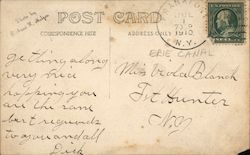 POST CARD
CORRESPONDENCE HERE
ADDRESS ONLY
N.Y.
1910
ERIE CANAL
getting along
very nice
hopping you
are the same
best regards
to you and all
Dick
Miss Veola Blanch
Ft Hunter
N.Y.